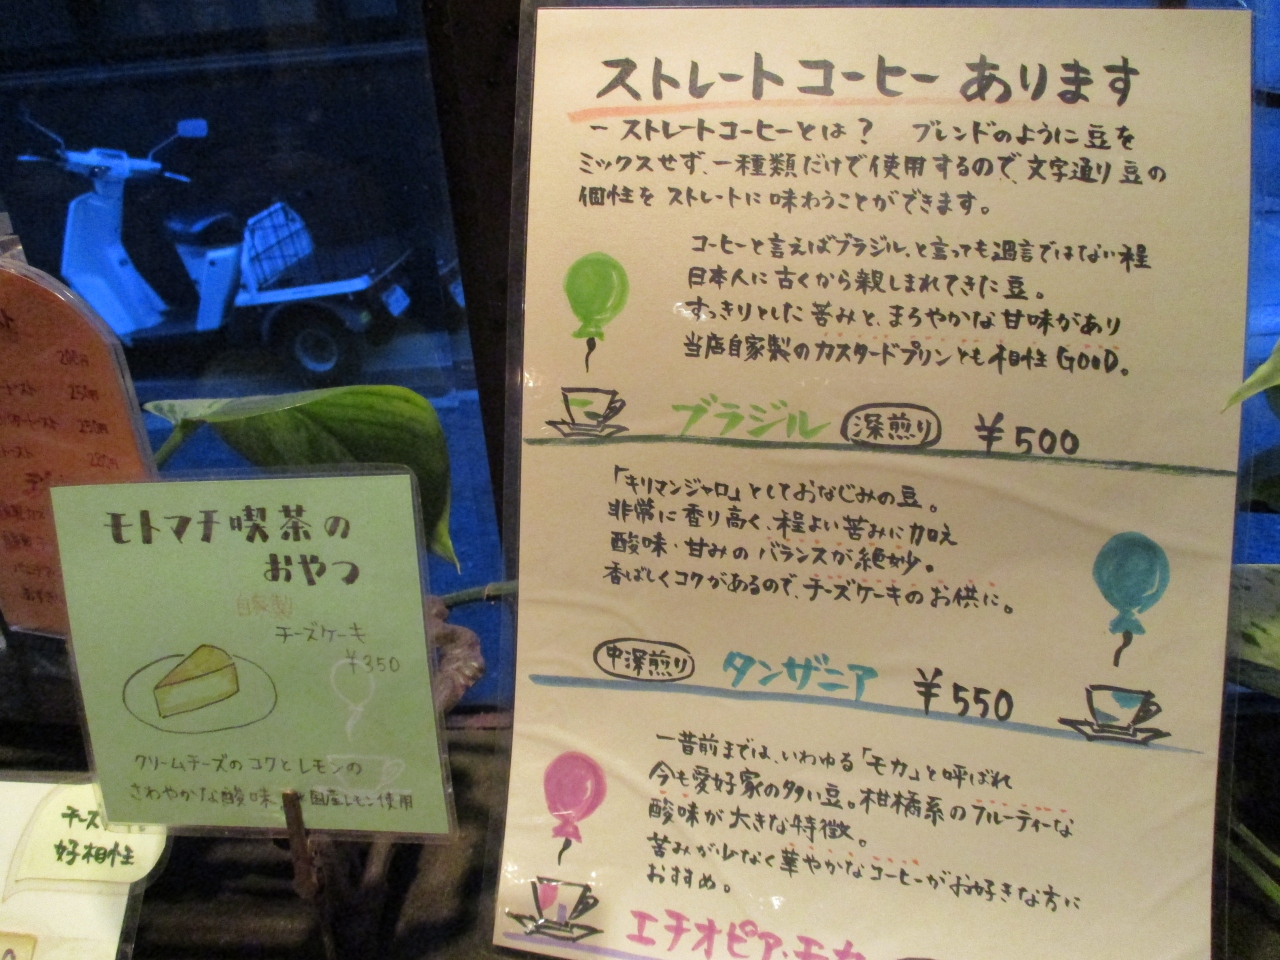 ストレートコーヒー あります
ー ストレートコーヒーとは? ブレンドのように豆を
ミックスせず、一種類だけで使用するので、文字通り豆の
個性を ストレートに味わうことができます。
コーヒーと言えばブラジル、と言っても過言ではない程
日本人に古くから親しまれてきた豆。
すっきりとした苦みと、まろやかな甘味があり
当店自家製のカスタードプリンとも相性GOOD。
ブラジル 深煎り ¥500
「キリマンジャロ」としておなじみの豆。
非常に香り高く、程よい苦みに加え
酸味・甘みのバランスが絶妙。
香ばしくコクがあるので、チーズケーキのお供に。
中深煎り タンザニア ¥550
一昔前までは、いわゆる「モカ」と呼ばれ
今も愛好家の多い豆。柑橘系のフルーティーな
酸味が大きな特徴。
苦みが少なく華やかなコーヒーがお好きな方に
おすすめ。
エチオピア・モカ
モトマチ喫茶の
おやつ
自家製
チーズケーキ
¥350
クリームチーズのコクとレモンの
さわやかな酸味 国産レモン使用
チーズ
好相性
200円
250円
250円